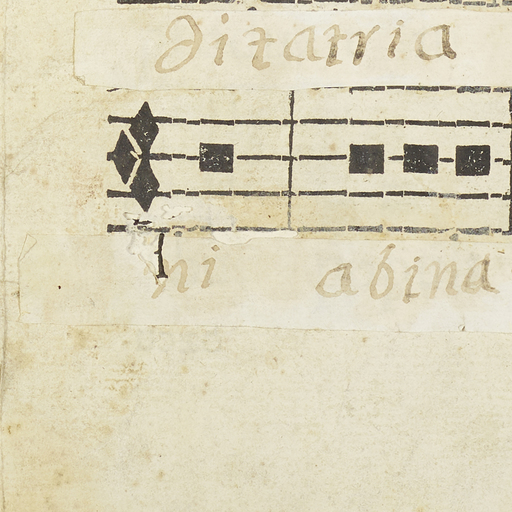 ditatria
ni abina